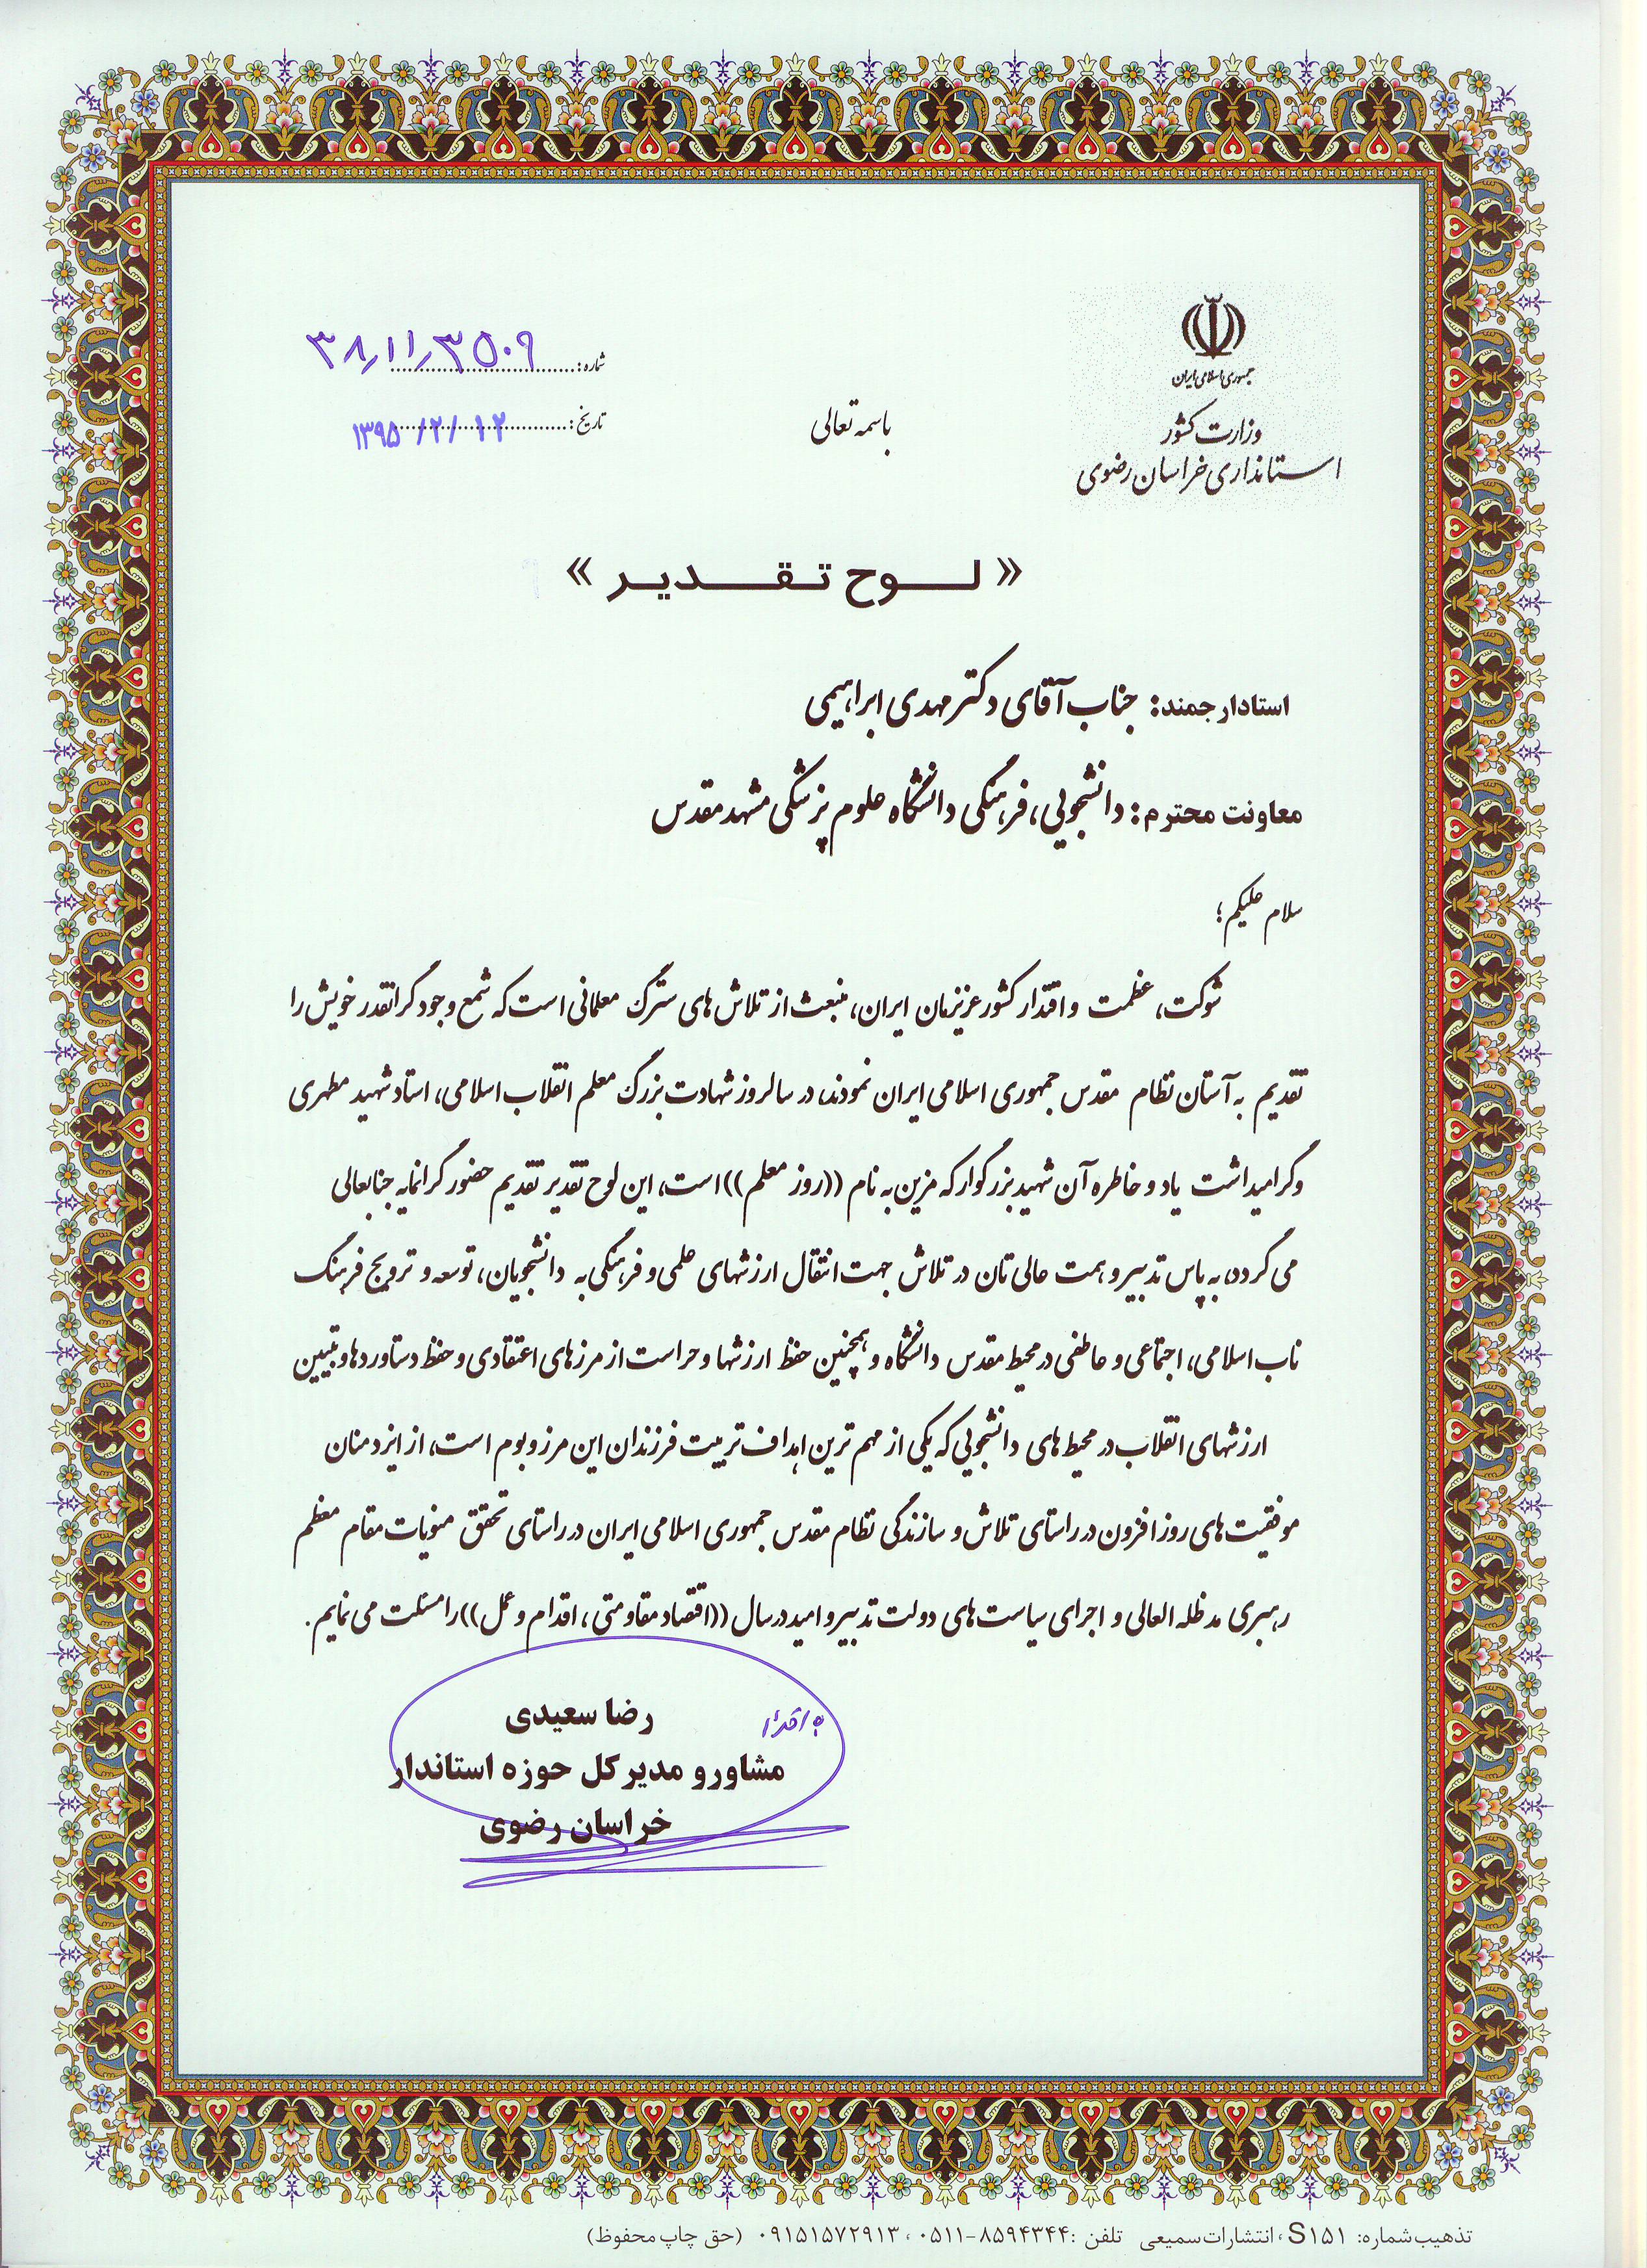 جمهوری اسلامی ایران
وزارت کشور
استانداری خراسان رضوی
باسمه تعالی
شماره: ۳۸٫۱۱٫۳۵۰۹
تاریخ: ۱۳۹۵/۲/۱۲
« لوح تقدیر »
استاد ارجمند: جناب آقای دکتر مهدی ابراهیمی
معاونت محترم: دانشجویی، فرهنگی دانشگاه علوم پزشکی مشهد مقدس
سلام علیکم؛
شوکت، عظمت و اقتدار کشور عزیزمان ایران، منبعث از تلاش های سترگ معلمانی است که شمع وجود گرانقدر خویش را
تقدیم به آستان نظام مقدس جمهوری اسلامی ایران نمودند، در سالروز شهادت بزرگ معلم انقلاب اسلامی، استاد شهید مطهری
و گرامیداشت یاد و خاطره آن شهید بزرگوار که مزین به نام ((روز معلم)) است، این لوح تقدیر تقدیم حضور گرانمایه جنابعالی
می گردد، به پاس تدبیر و همت عالی تان در تلاش جهت انتقال ارزشهای علمی و فرهنگی به دانشجویان، توسعه و ترویج فرهنگ
ناب اسلامی، اجتماعی و عاطفی در محیط مقدس دانشگاه و همچنین حفظ ارزشها و حراست از مرزهای اعتقادی و حفظ دستاوردها و تبیین
ارزشهای انقلاب در محیط های دانشجویی که یکی از مهم ترین اهداف تربیت فرزندان این مرز و بوم است، از ایزد منان
موفقیت های روزافزون در راستای تلاش و سازندگی نظام مقدس جمهوری اسلامی ایران در راستای تحقق منویات مقام معظم
رهبری مدظله العالی و اجرای سیاست های دولت تدبیر و امید در سال ((اقتصاد مقاومتی، اقدام و عمل)) را مسئلت می نمایم.
رضا سعیدی
مشاور و مدیر کل حوزه استاندار
خراسان رضوی
تذهیب شماره: S۱۵۱، انتشارات سمیعی تلفن: ۸۵۹۴۳۴۴-۰۵۱۱، ۰۹۱۵۱۵۷۲۹۱۳ (حق چاپ محفوظ)